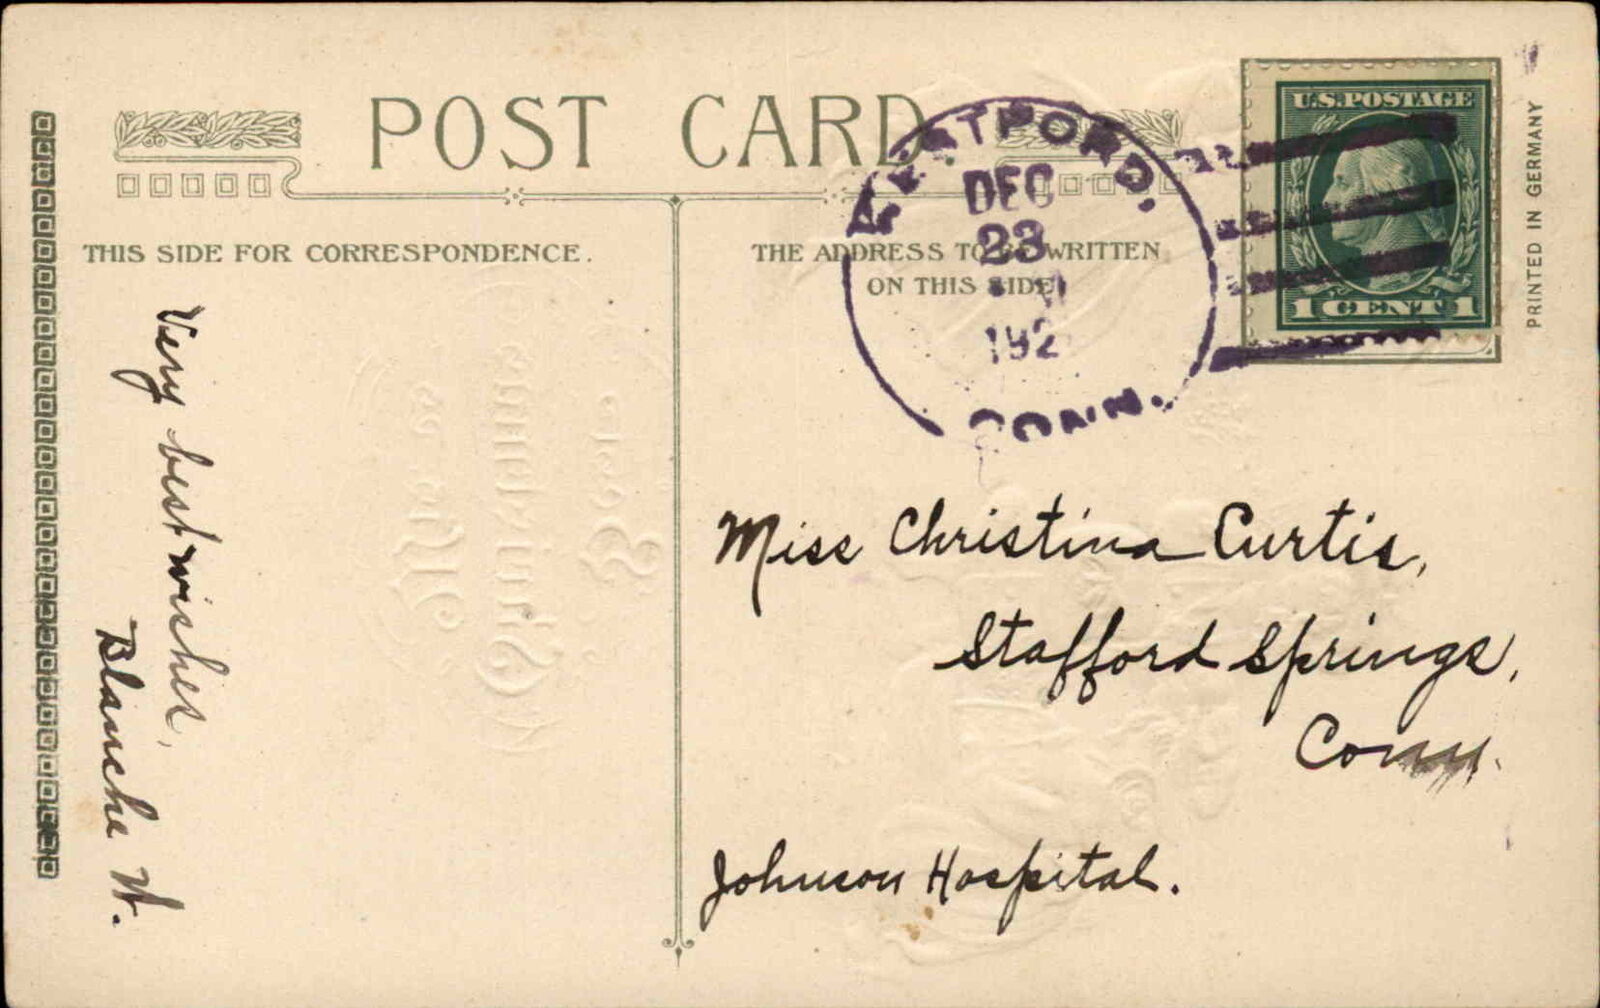 POST CARD
THIS SIDE FOR CORRESPONDENCE.
THE ADDRESS TO BE WRITTEN
ON THIS SIDE
STRATFORD,
DEC
23
192
CONN.
U.S. POSTAGE
1 CENT 1
PRINTED IN GERMANY
Very best wishes,
Blanche W.
Miss Christina Curtis,
Stafford Springs,
Conn.
Johnson Hospital.